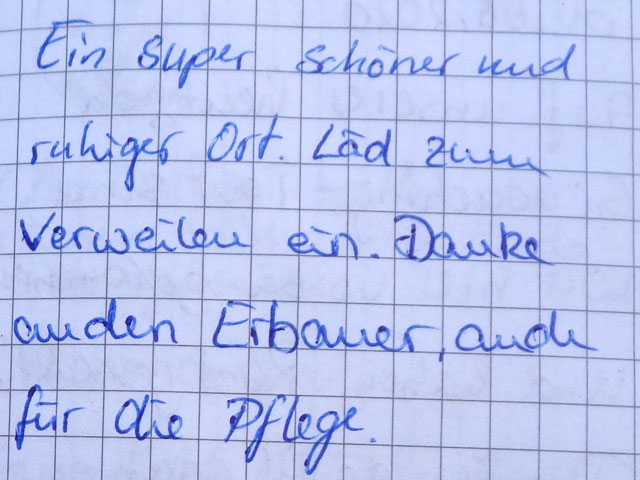 Ein super schöner und
ruhiger Ort. Läd zum
Verweilen ein. Danke
an den Erbauer, auch
für die Pflege.